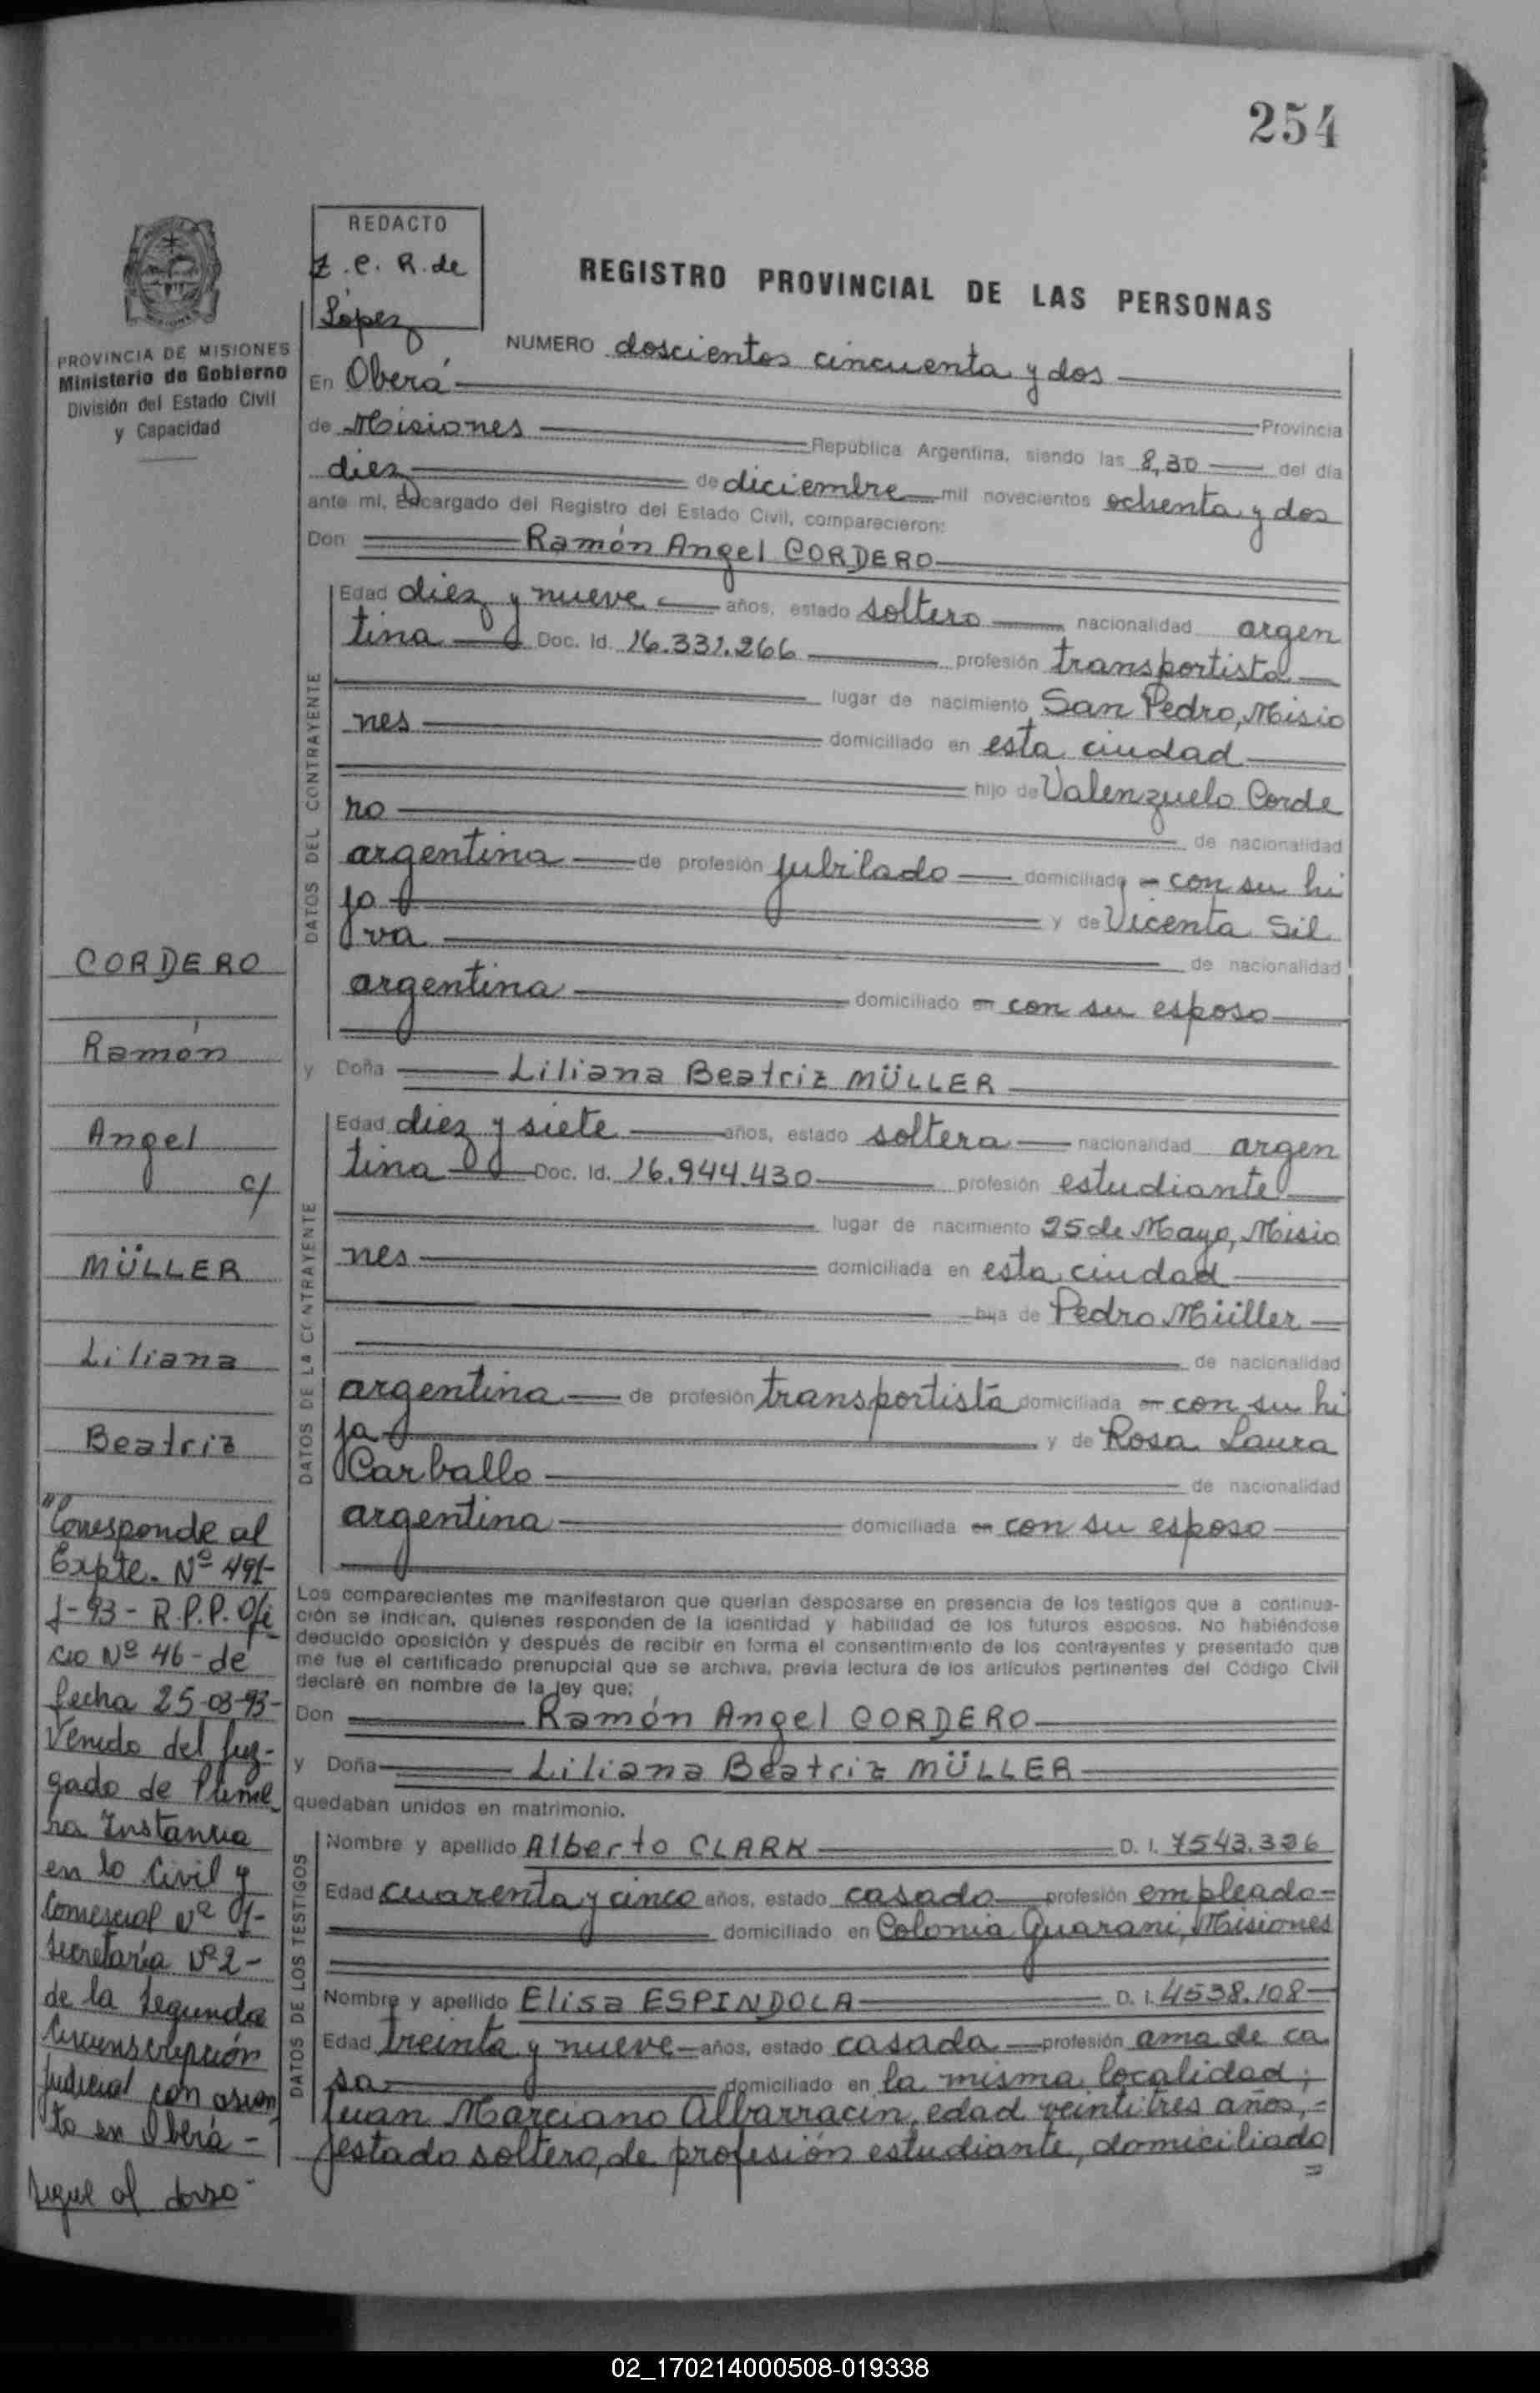 254
REDACTO
Z. C. R. de
López
REGISTRO PROVINCIAL DE LAS PERSONAS
PROVINCIA DE MISIONES
Ministerio de Gobierno
División del Estado Civil
y Capacidad
NUMERO doscientos cincuenta y dos
En Oberá Provincia
de Misiones República Argentina, siendo las 8,30 del día
diez de diciembre mil novecientos ochenta y dos
ante mi, Encargado del Registro del Estado Civil, comparecieron:
Don Ramón Angel CORDERO
DATOS DEL CONTRAYENTE
Edad diez y nueve años, estado soltero nacionalidad argen
tina Doc. Id. 16.331.266 profesión transportista
lugar de nacimiento San Pedro, Misio
nes domiciliado en esta ciudad
hijo de Valenzuelo Corde
ro de nacionalidad
argentina de profesión jubilado domiciliado en con su hi
jo y de Vicenta Sil
va de nacionalidad
argentina domiciliado en con su esposo
y Doña Liliana Beatriz MÜLLER
DATOS DE LA CONTRAYENTE
Edad diez y siete años, estado soltera nacionalidad argen
tina Doc. Id. 16.944.430 profesión estudiante
lugar de nacimiento 25 de Mayo, Misio
nes domiciliada en esta ciudad
hija de Pedro Müller
de nacionalidad
argentina de profesión transportista domiciliada en con su hi
ja y de Rosa Laura
Carballo de nacionalidad
argentina domiciliada en con su esposo
Los comparecientes me manifestaron que querían desposarse en presencia de los testigos que a continua-
ción se indican, quienes responden de la identidad y habilidad de los futuros esposos. No habiéndose
deducido oposición y después de recibir en forma el consentimiento de los contrayentes y presentado que
me fue el certificado prenupcial que se archiva, previa lectura de los artículos pertinentes del Código Civil
declaré en nombre de la ley que:
Don Ramón Angel CORDERO
y Doña Liliana Beatriz MÜLLER
quedaban unidos en matrimonio.
DATOS DE LOS TESTIGOS
Nombre y apellido Alberto CLARK D. I. 7543.336
Edad cuarenta y cinco años, estado casado profesión empleado=
domiciliado en Colonia Guaraní, Misiones
Nombre y apellido Elisa ESPINDOLA D. I. 4538.108
Edad treinta y nueve años, estado casada profesión ama de ca
sa domiciliado en la misma localidad;
Juan Marciano Albarracín, edad veintitres años,=
estado soltero, de profesión estudiante, domiciliado
=
CORDERO
Ramón
Angel
c/
MÜLLER
Liliana
Beatriz
"Corresponde al
Expte. Nº 491-
J-93- R.P.P. Ofi
cio Nº 46- de
fecha 25-03-93-
Venido del Juz-
gado de Prime_
ra Instancia
en lo Civil y
Comercial Nº 01-
Secretaría Nº 2-
de la Segunda
Circunscripción
Judicial con asien
to en Oberá-
Sigue al dorso-
02_170214000508-019338